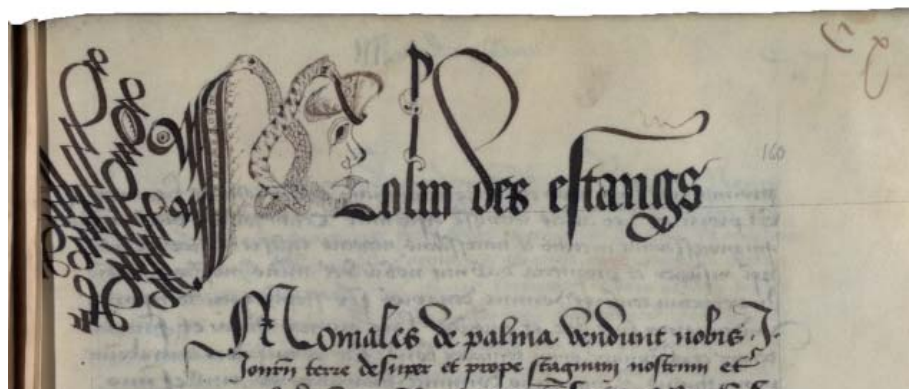 Molin des estangs
160
Moniales de palma vendunt nobis .I.
Jontum terre desuper et prope stagnum nostrum et